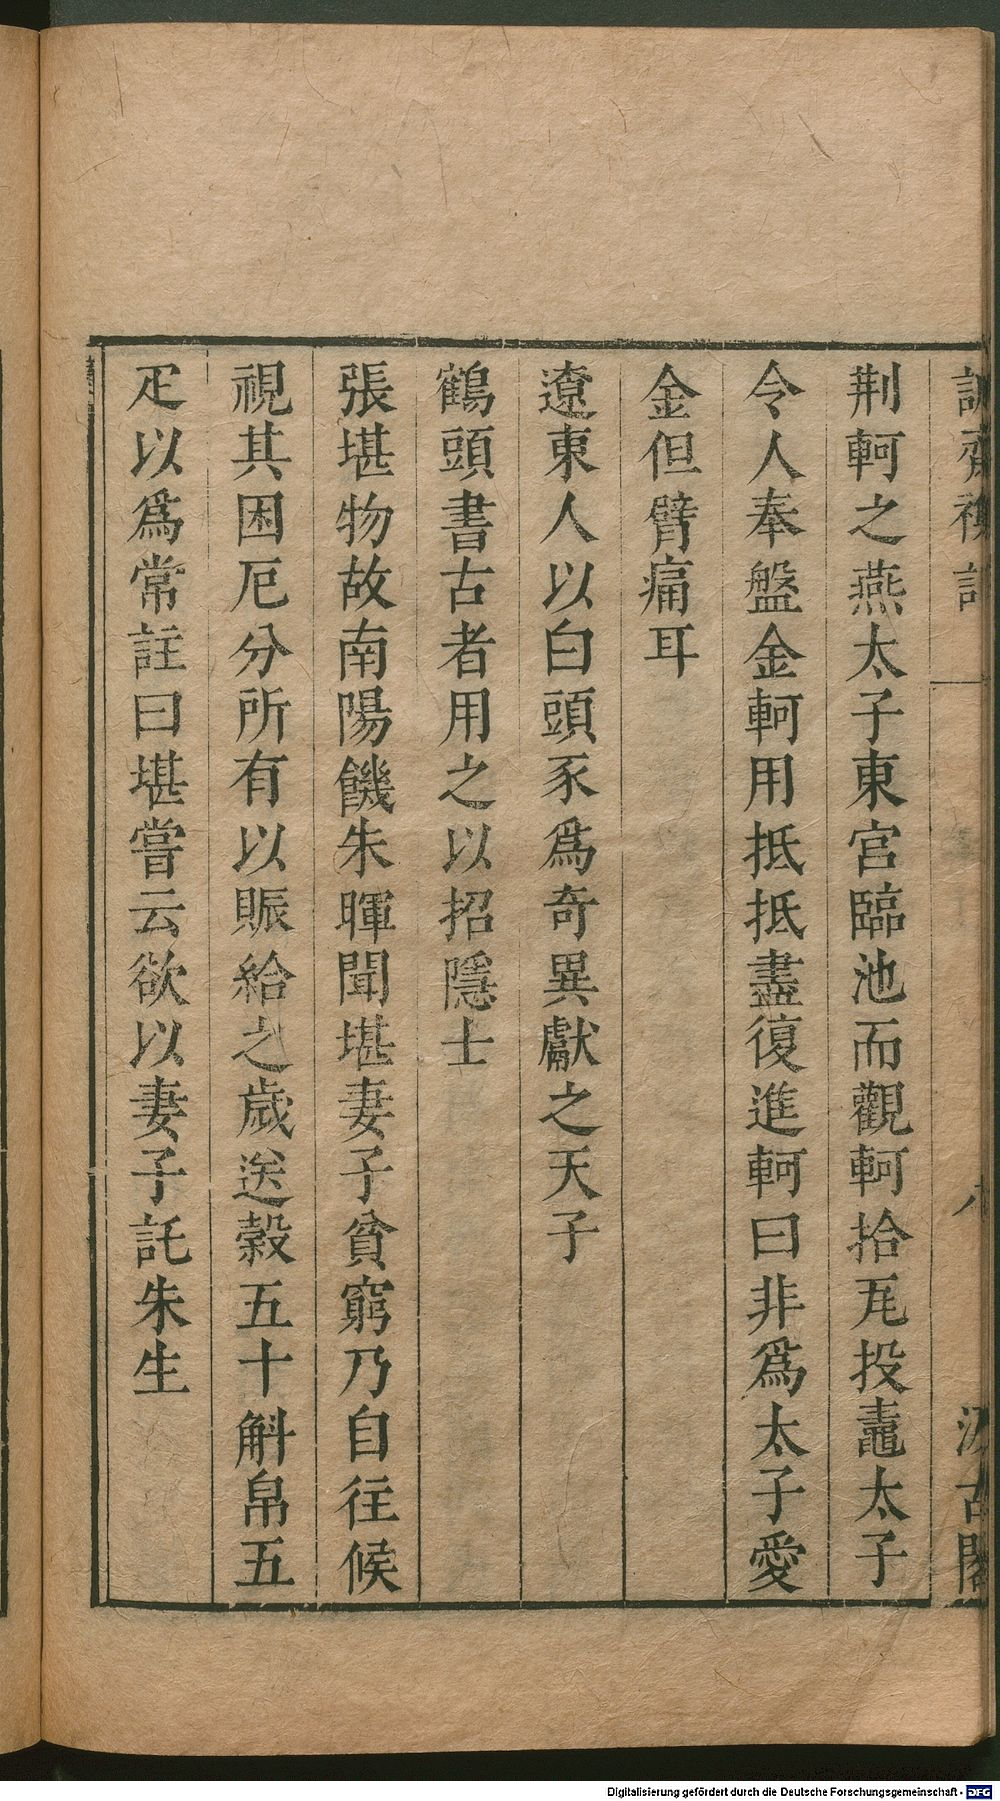 荆軻之燕太子東宫臨池而觀軻拾瓦投鼃太子
令人奉盤金軻用抵抵盡復進軻曰非爲太子愛
金但臂痛耳
遼東人以白頭豕爲奇異獻之天子
鶴頭書古者用之以招隱士
張堪物故南陽饑朱暉聞堪妻子貧窮乃自往候
視其困厄分所有以賑給之歲送榖五十斛帛五
疋以爲常註曰堪嘗云欲以妻子託朱生
Digitalisierung gefördert durch die Deutsche Forschungsgemeinschaft - DFG